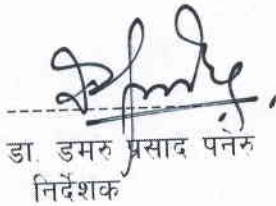 डा. डमरु प्रसाद पनेरु
निर्देशक